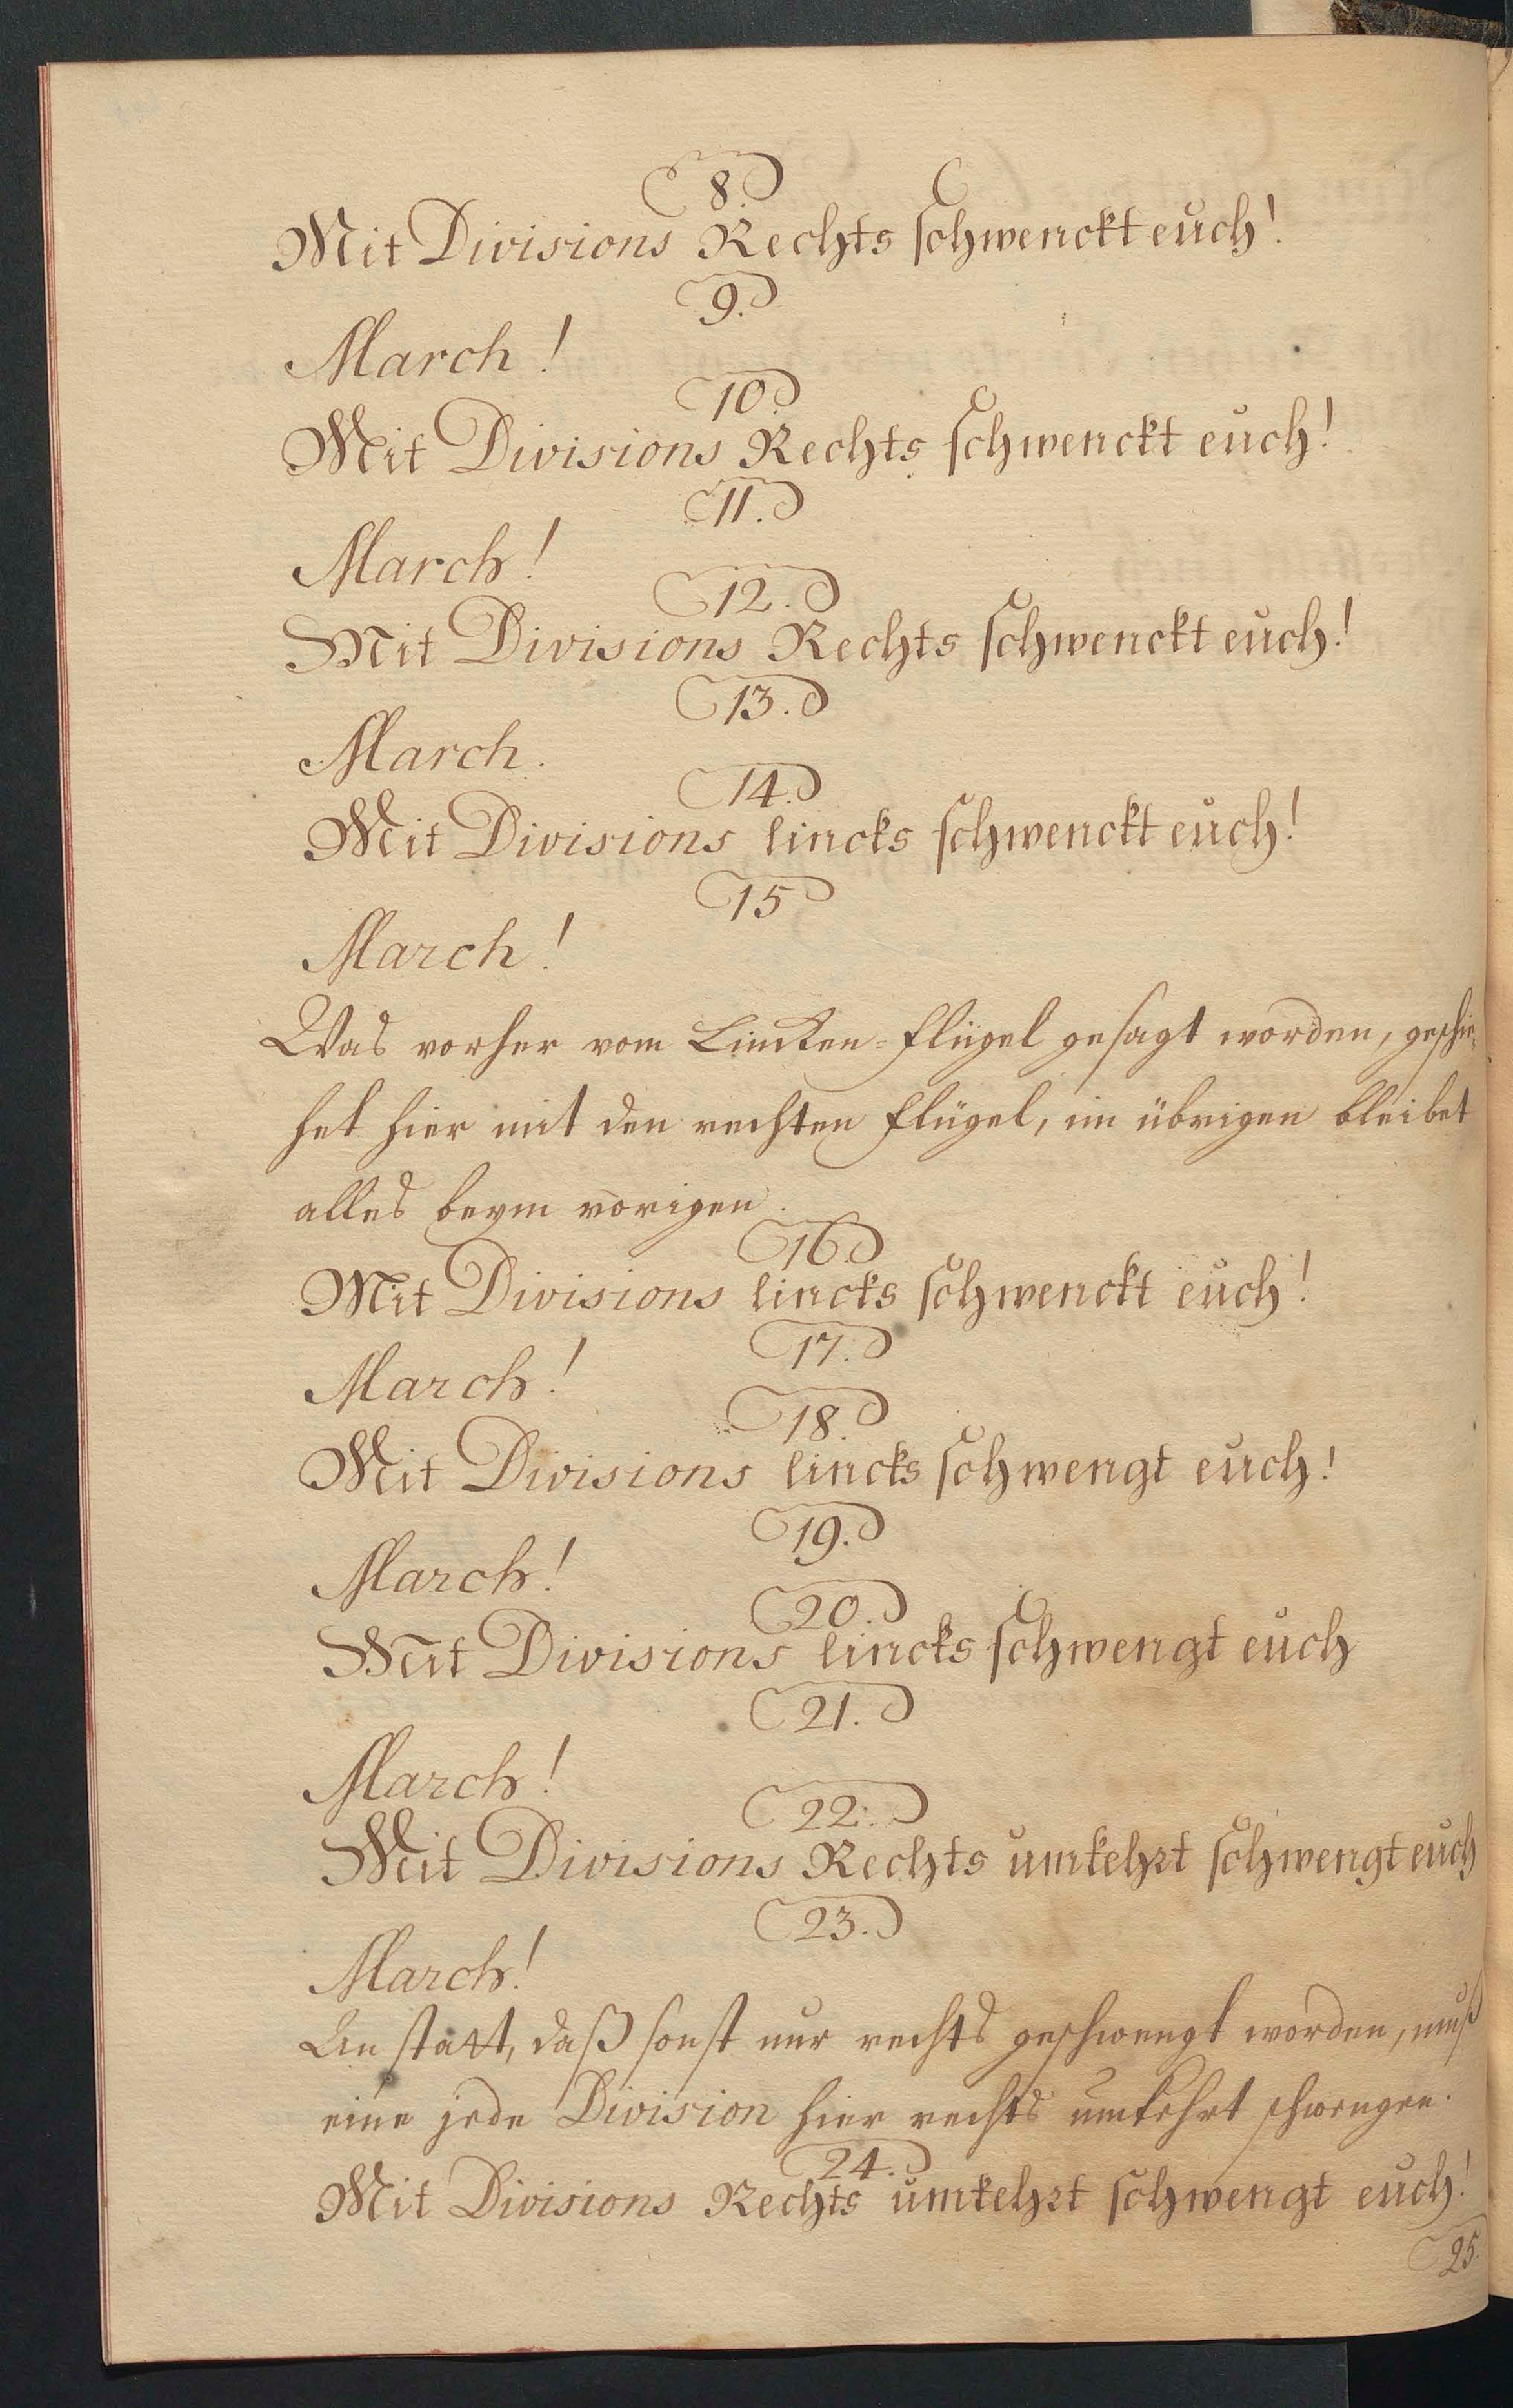 8.
Mit Divisions Rechts schwenckt euch!
9.
March!
10.
Mit Divisions Rechts schwenckt euch!
11.
March!
12.
Mit Divisions Rechts schwenckt euch!
13.
March.
14.
Mit Divisions lincks schwenckt euch!
15
March!
Was vorher vom Lincken=Flügel gesagt worden, geschie,
het hier mit den rechten Flügel, im übrigen bleibet
alles beym vorigen.
16.
Mit Divisions lincks schwenckt euch!
17.
March!
18.
Mit Divisions lincks schwengt euch!
19.
March!
20.
Mit Divisions lincks schwengt euch
21.
March!
22.
Mit Divisions Rechts umkehrt schwengt euch
23.
March!
An statt, daß sonst nur rechts geschwengt worden, muß
eine jede Division hier rechts umkehrt schwengen.
24.
Mit Divisions Rechts umkehrt schwengt euch!
25.